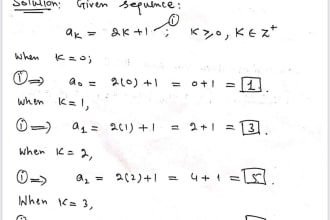 Solution: Given sequence:
aₖ = 2K+1 — ① ; K ≥ 0, K ∈ Z⁺
When K = 0;
① ⟹ a₀ = 2(0) + 1 = 0+1 = 1.
When K = 1,
① ⟹ a₁ = 2(1) + 1 = 2+1 = 3.
When K = 2,
① ⟹ a₂ = 2(2)+1 = 4+1 = 5.
When K = 3,